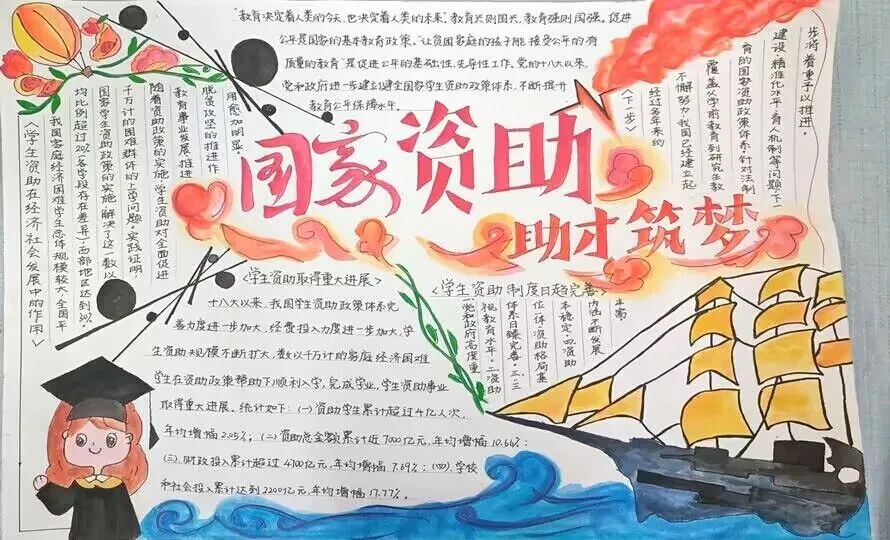 "教育决定着人类的今天,也决定着人类的未来。教育兴则国兴,教育强则国强。促进
公平是国家的基本教育政策。"让贫困家庭的孩子能接受公平的有
质量的教育"是促进公平的基础性,先导性工作。党的十八大以来,
党和政府进一步建立健全国家学生资助政策体系,不断提升
教育公平保障水平。
国家资助
助才筑梦
<学生资助在经济社会发展中的作用>
我国家庭经济困难学生总体规模较大,全国平
均比例超过20%(各学段存在差异),西部地区达到30%。
国家学生资助政策的实施,解决了这一数以
千万计的困难群体的上学问题。实践证明,
随着资助政策的实施,学生资助对全面促进
教育事业发展、推进
脱贫攻坚的推进作
用愈加明显。
<下一步>
经过多年来的
不懈努力,我国已经建立起
覆盖从学前教育到研究生教
育的国家资助政策体系,针对法制
建设、精准化水平、育人机制等问题,下一
步将着重予以推进。
<学生资助取得重大进展>
十八大以来,我国学生资助政策体系完
善力度进一步加大,经费投入力度进一步加大,学
生资助规模不断扩大,数以千万计的家庭经济困难
学生在资助政策帮助下顺利入学,完成学业,学生资助事业
取得重大进展。统计如下:(一)资助学生累计超过4亿人次,
年均增幅2.05%;(二)资助总金额累计近7000亿元,年均增幅10.66%;
(三)、财政投入累计超过4700亿元,年均增幅7.69%;(四)、学校
和社会投入累计达到2200亿元,年均增幅17.77%。
<学生资助制度日趋完善>
一、党和政府高度重
视教育水平。二、资助
体系日臻完善。三、三
位一体资助格局基
本稳定。四、资助
内涵不断发展
丰富